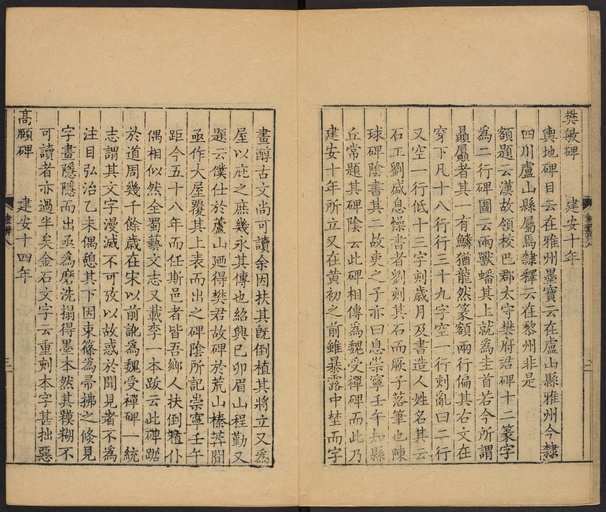 樊敏碑 建安十年
輿地碑目云在雅州墨寶云在盧山縣雅州今隸
四川盧山縣屬焉隸釋云在黎州非是
額題云漢故領校巴郡太守樊府君碑十二篆字
為二行碑圖云兩獸蟠其上就為圭首若今所謂
贔屭者其一有鱗猶龍然篆額兩行偏其右文在
穿下凡十八行行三十九字空一行刻亂曰二行
又空一行低十三字刻歲月及書造人姓名其云
石工劉盛息懆書者劉刻其石而厥子落筆也陳
球碑陰書其二故吏之子亦曰息崇寧壬午知縣
丘常題其碑陰云此碑相傳為魏受禪碑而此乃
建安十年所立又在黃初之前雖暴露中埜而字
畫醇古文尚可讀余因扶其既倒植其將立又為
屋以庇之庶幾永其傳也紹興己卯眉山程勤又
題云僕仕於蘆山廼得樊君故碑於荒山榛莽間
亟作大屋覆其上表而出之碑陰所記崇寧壬午
距今五十八年而任斯邑者皆吾鄉人扶倒植仆
偶相似然全蜀藝文志又載李一本跋云此碑踞
於道周幾千餘歲在宋以前訛為魏受禪碑一統
志謂其文字漫滅不可攷以故惑於聞見者不為
注目弘治乙未偶憩其下因束篠為帚拂之條見
字畫隱隱而出亟為磨洗搨得墨本然其糢糊不
可讀者亦過半矣金石文字云重刻本字甚拙惡
高頤碑 建安十四年